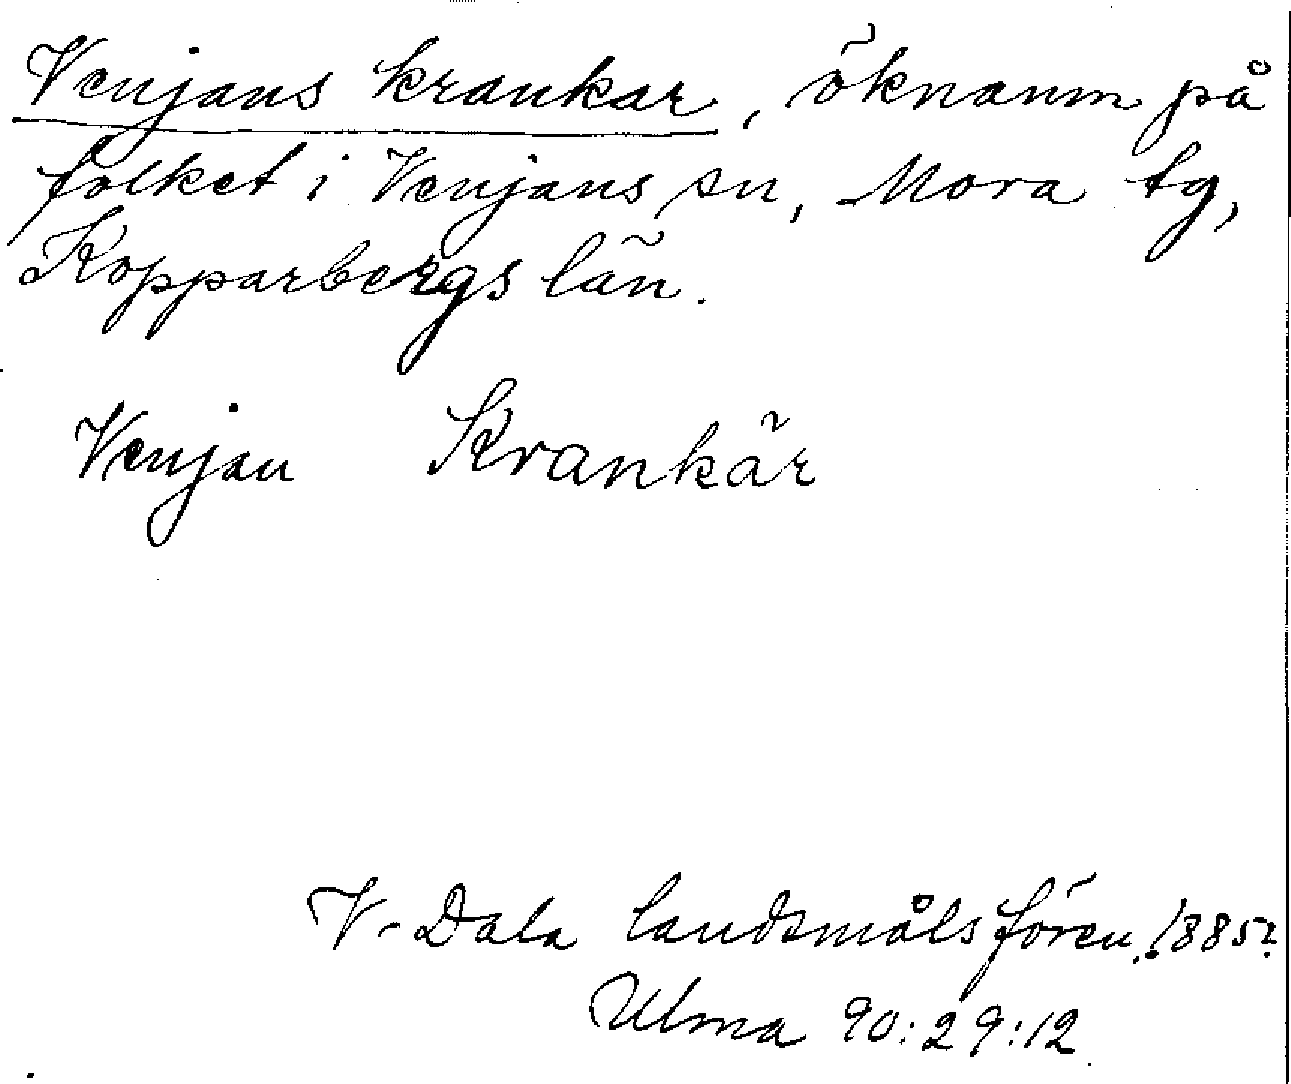 Venjans krankar, öknamn på
folket i Venjans sn, Mora tg,
Kopparbergs län.
Venjan Krankär
V-Dala landsmålsfören. 1885?
Ulma 90:29:12